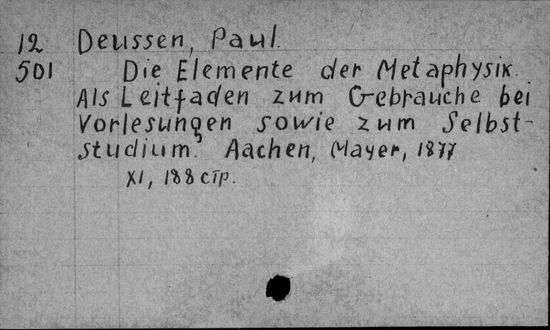 12 Deussen, Paul.
501 Die Elemente der Metaphysik.
Als Leitfaden zum Gebrauche bei
Vorlesungen sowie zum Selbst-
studium. Aachen, Mayer, 1877
XI, 188 стр.